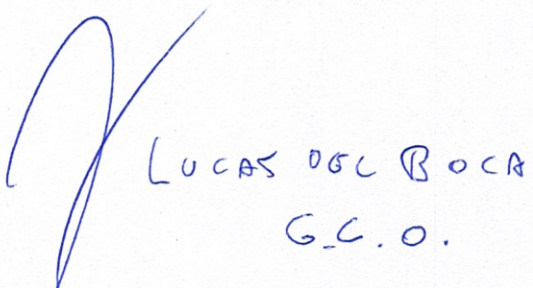 LUCAS DEL BOCA
G.C.O.